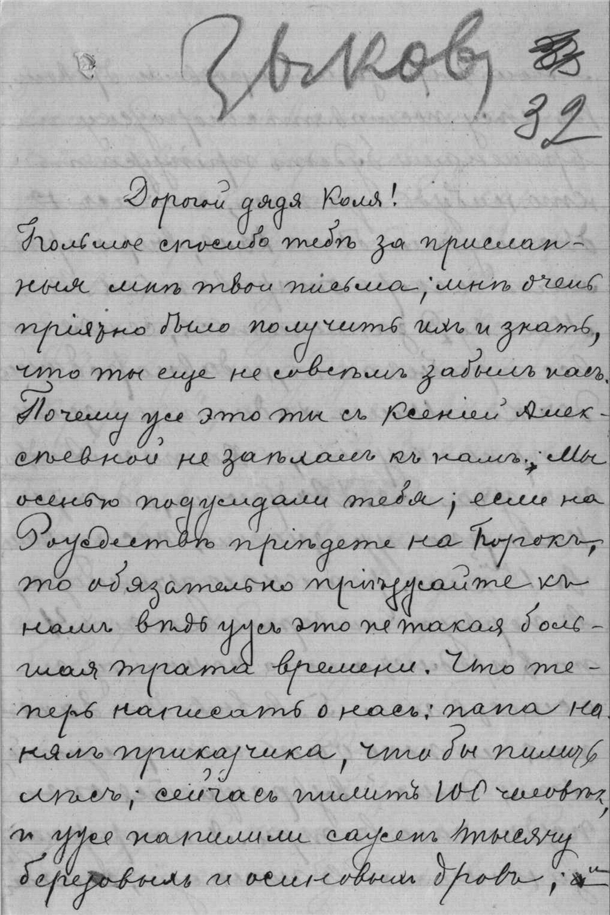 Зыковъ
33
32
Дорогой дядя Коля!
Большое спосибо тебѣ за прислан-
ныя мнѣ твои письма; мнѣ очень
пріятно было получить ихъ и знать,
что ты еще не совсѣмъ забылъ насъ.
Почему же это ты съ Ксеніей Алек-
сѣевной не заѣхалъ къ намъ; Мы
осенью поджидали тебя; если на
Рождество пріѣдете на Порокъ,
то обязательно пріѣзжайте къ
намъ вѣдь ужъ это не такая боль-
шая трата времени. Что те-
перь написать о насъ: папа на-
нялъ приказчика, что бы пилить
лѣсъ; сейчасъ пилитъ 100 человѣкъ,
и уже напилили сажень тысячу
березовыхъ и осиновыхъ дровъ;